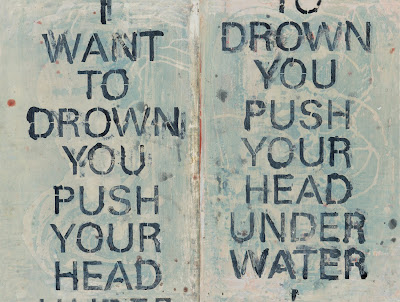 I
WANT
TO
DROWN
YOU
PUSH
YOUR
HEAD
UNDER
TO
DROWN
YOU
PUSH
YOUR
HEAD
UNDER
WATER
I